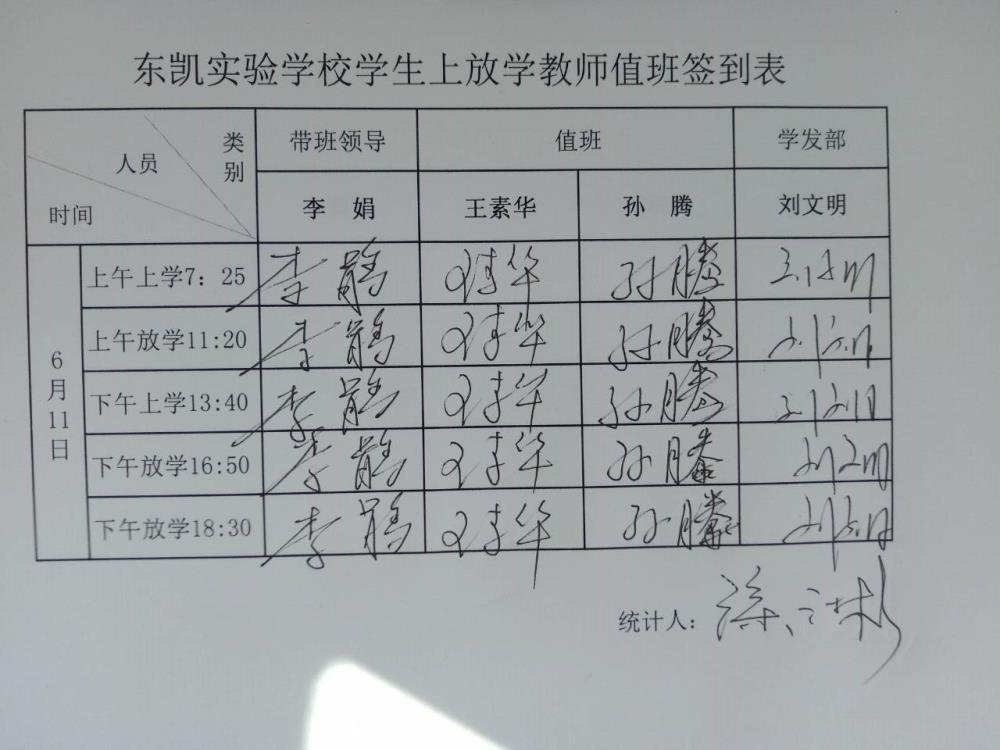 东凯实验学校学生上放学教师值班签到表
人员 类别 带班领导 值班 学发部
时间 李 娟 王素华 孙 腾 刘文明
6月11日
上午上学7：25 李娟 王素华 孙腾 刘文明
上午放学11:20 李娟 王素华 孙腾 刘文明
下午上学13:40 李娟 王素华 孙腾 刘文明
下午放学16:50 李娟 王素华 孙腾 刘文明
下午放学18:30 李娟 王素华 孙腾 刘文明
统计人：